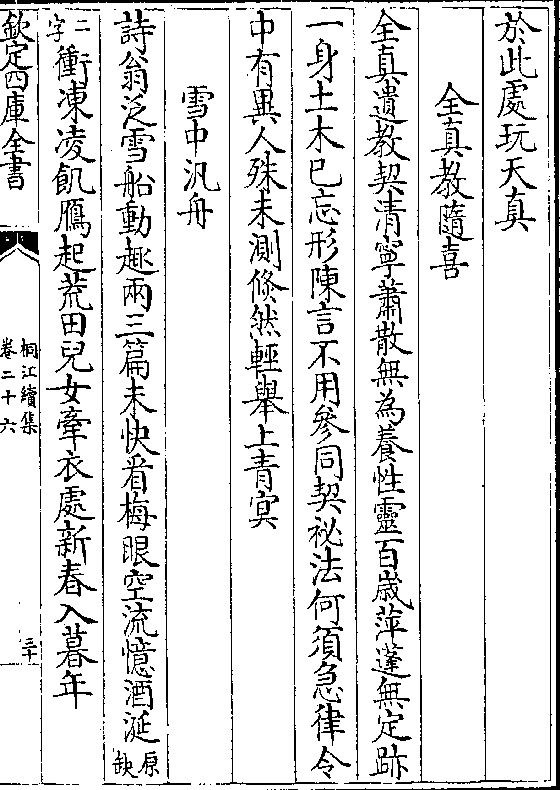 於此處玩天真
全真教隨喜
全真遺教契清寧蕭散無為養性靈百歲萍蓬無定跡
一身土木已忘形陳言不用參同契祕法何須急律令
中有異人殊未測倐然輕舉上青㝠
雪中汎舟
詩翁泛雪船動趣兩三篇未快看梅眼空流憶酒涎原缺
二字衝凍凌飢鴈起荒田兒女牽衣處新春入暮年
欽定四庫全書
桐江續集
卷二十六
三十